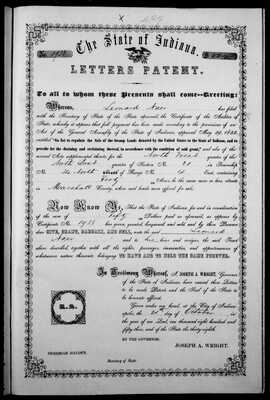 The State of Indiana.
LETTERS PATENT.
To all to whom these Presents shall come--Greeting:
Whereas, Leonard has filed
with the Secretary of the State the aforesaid the Certificate of the Auditor of
State, whereby it appears that full payment has been made according to the provisions of an
Act of the General Assembly of the State of Indiana, approved May 29, 1852,
entitled "An Act to regulate the Sale of the Swamp Lands donated by the United States to the State of Indiana, and to
provide for the draining and reclaiming thereof in accordance with the condition of said grant," and also of the
several Acts supplemental thereto for the North West quarter of the
North East quarter of Section No. 20 in Township
No. 34 North of Range No. 4 East, containing
Forty Acres, be the same more or less, situate
in Marshall County, when said lands were offered for sale.
Now Know Ye, That the State of Indiana for and in consideration
of the sum of Fifty Dollars paid as aforesaid, as appears by
Certificate No. granted, bargained and sold and by these Presents
does GIVE, GRANT, BARGAIN, AND SELL, unto the said Leonard
and to his heirs and assigns the said Tract
above described together with all the rights, privileges, immunities, and appurtenances of
whatsoever nature thereunto belonging TO HAVE AND TO HOLD THE SAME FOREVER.
In Testimony Whereof, I, JOSEPH A. WRIGHT, Governor
of the State of Indiana have caused these Letters
to be made Patent and the Seal of the State to
be hereunto affixed.
Given under my hand, at the City of Indianapolis
the 20 day of October in
the year of our Lord, one thousand eight hundred and
fifty and of the State the thirty eighth
BY THE GOVERNOR.
JOSEPH A. WRIGHT.
L.S.
Secretary of State